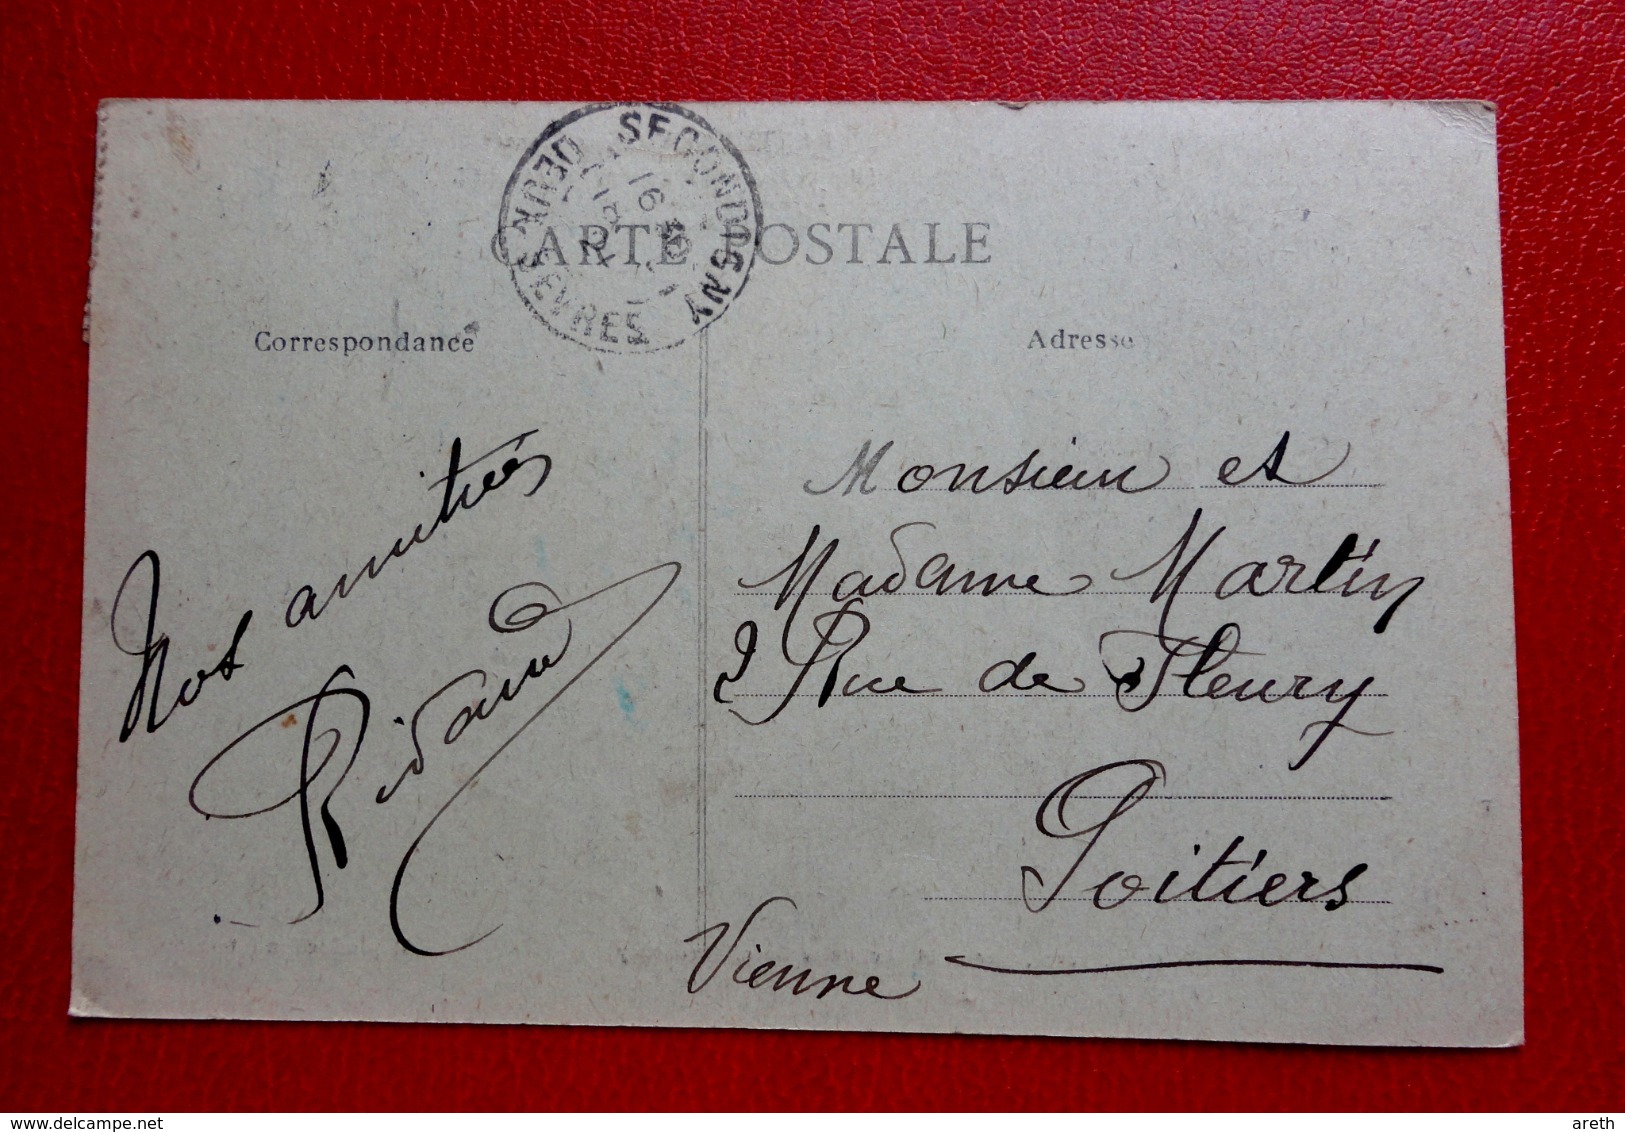 SECONDIGNY
DEUX SEVRES
16
CARTE POSTALE
Correspondance
Adresse
Nos amitiés
Monsieur et
Madame Martin
2 Rue de Fleury
Poitiers
Vienne
areth